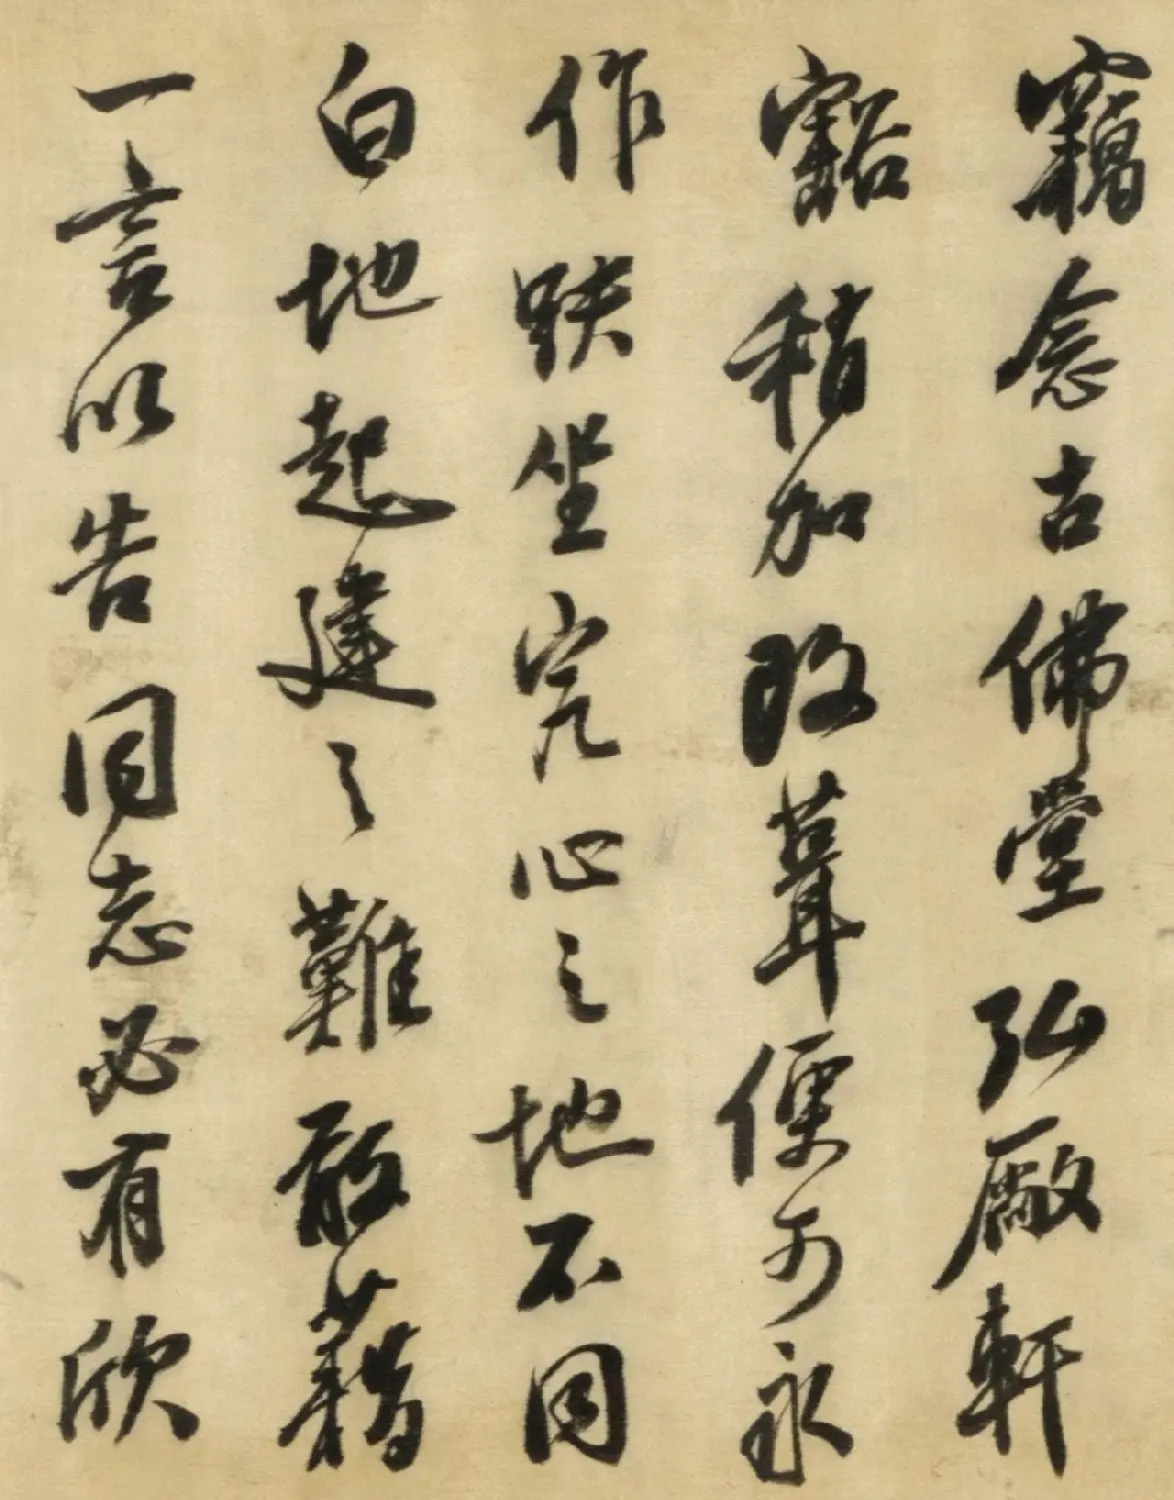 竊念古佛堂弘厰軒
豁稍加改葺便可永
作趺坐究心之地不同
白地起建之難敢藉
一言以告同志必有欣